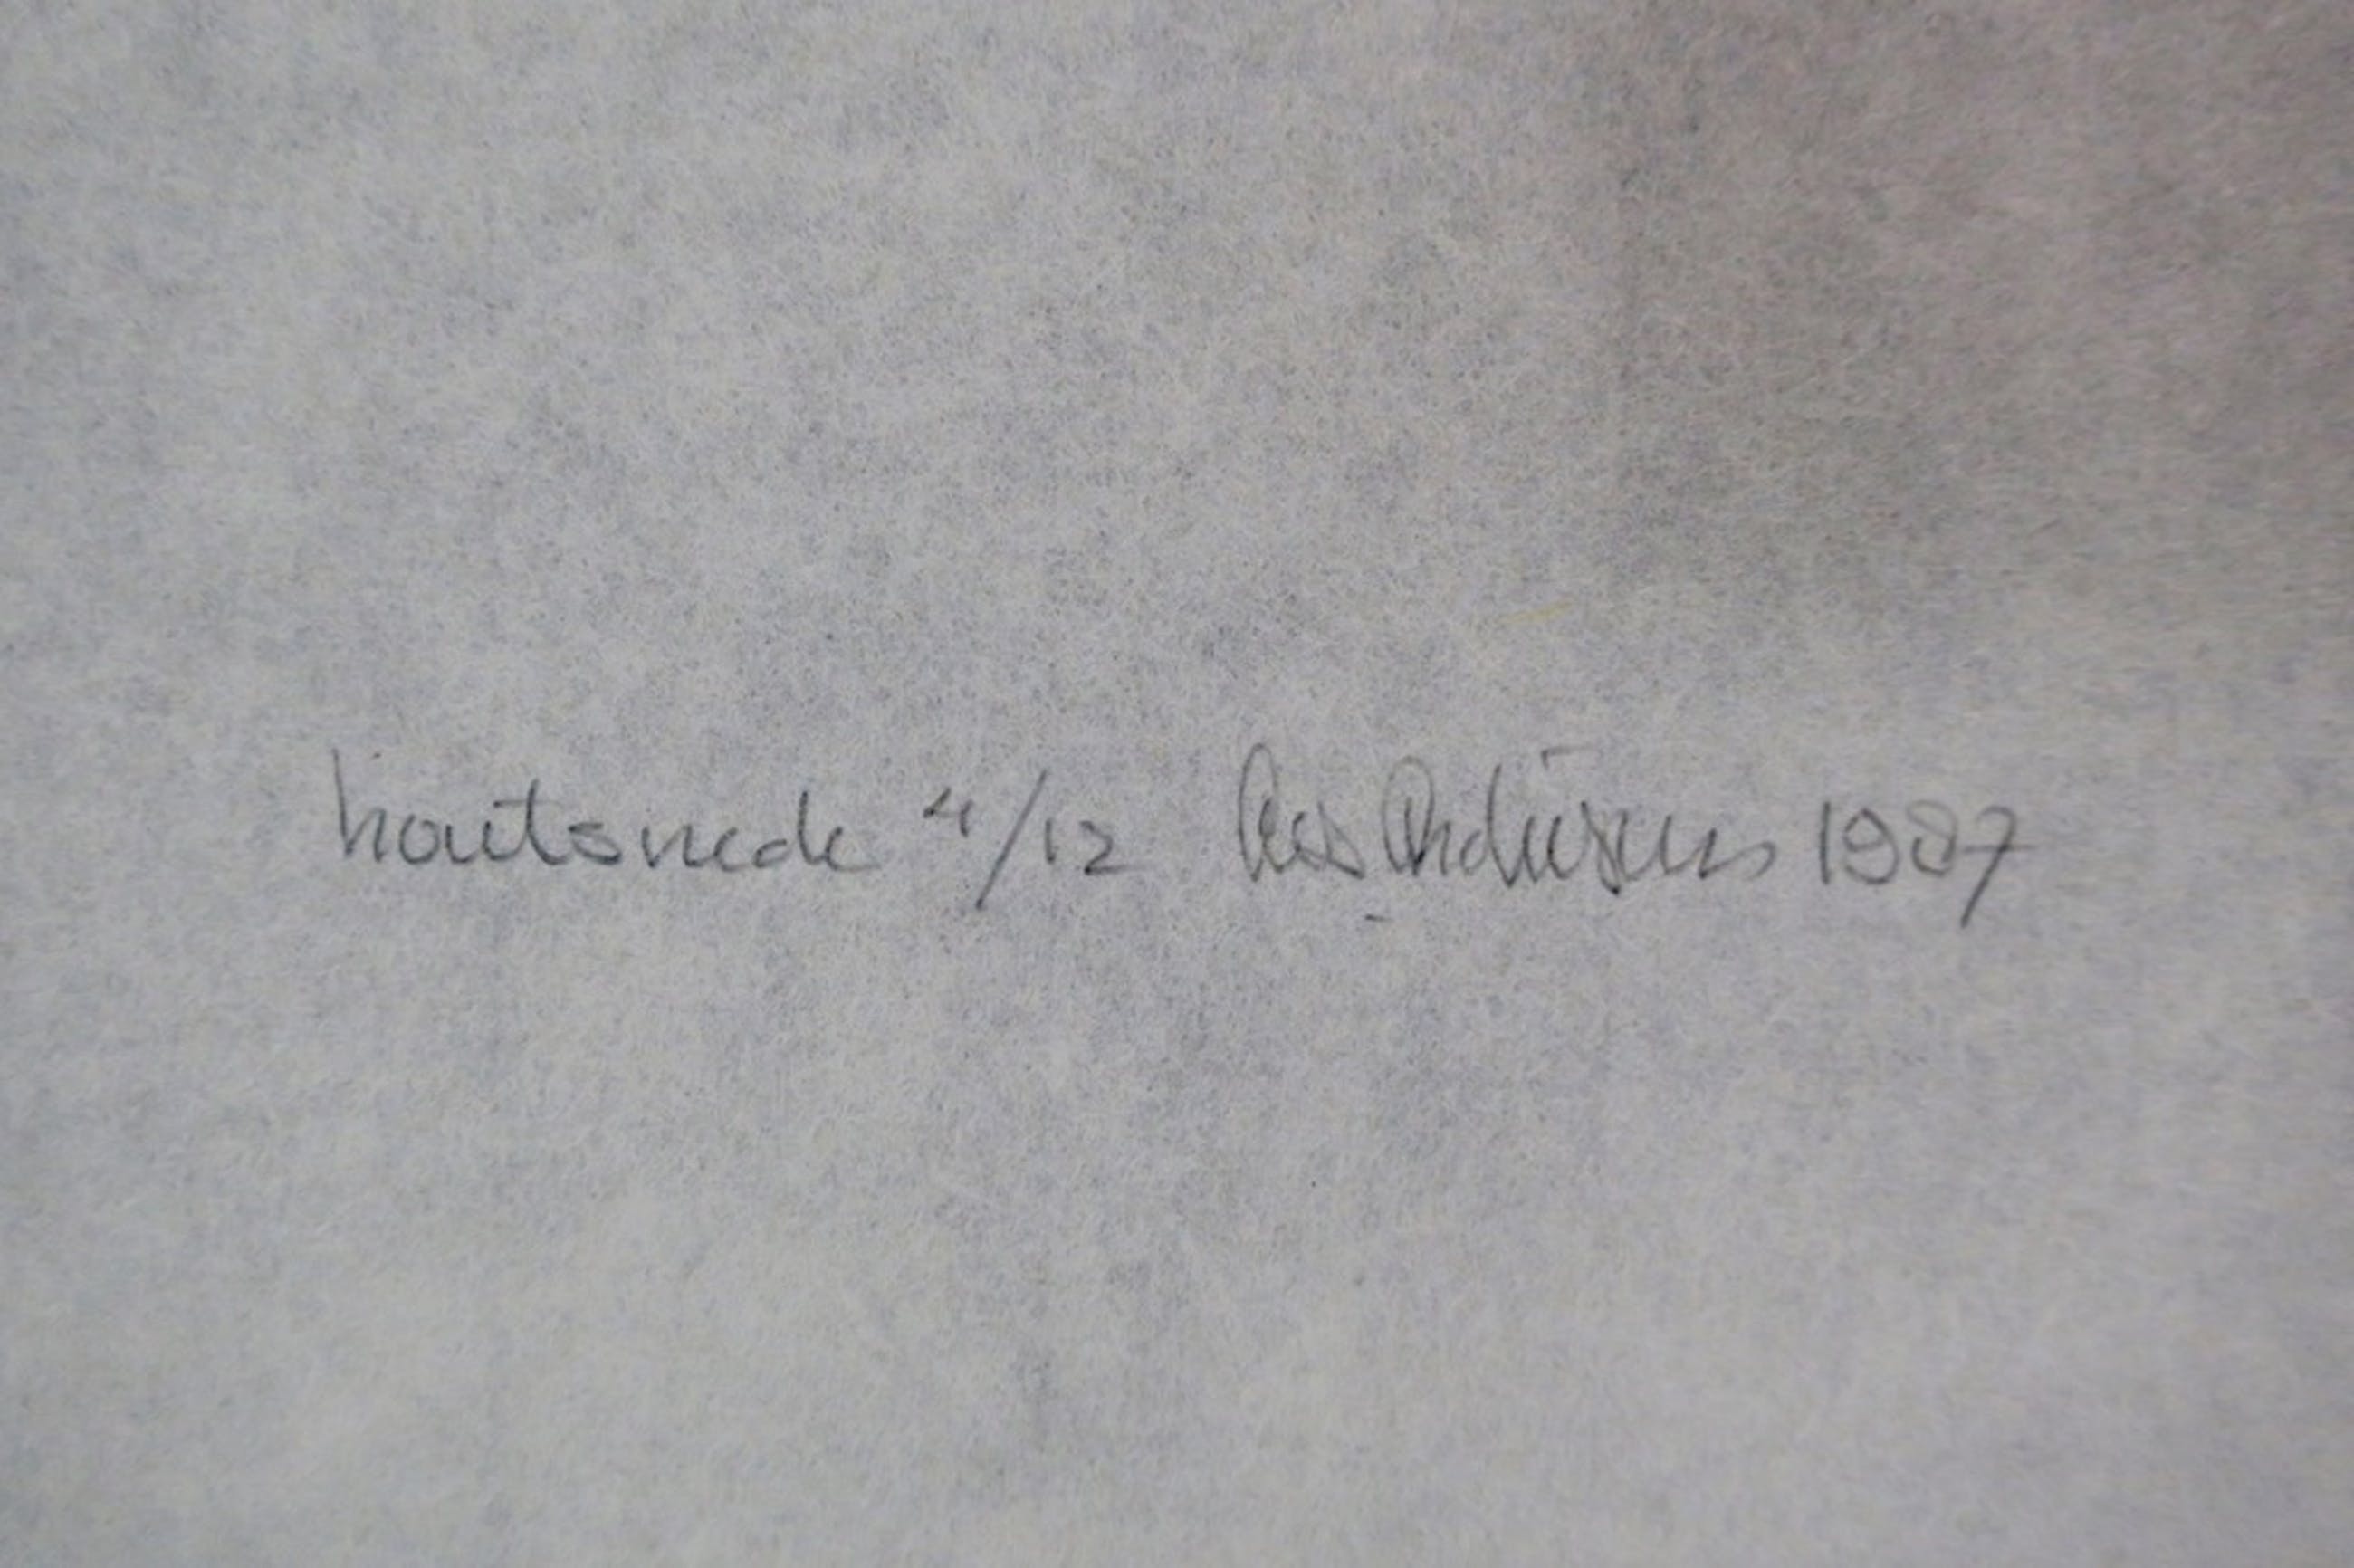 houtsnede 4/12 Cees Andriessen 1987